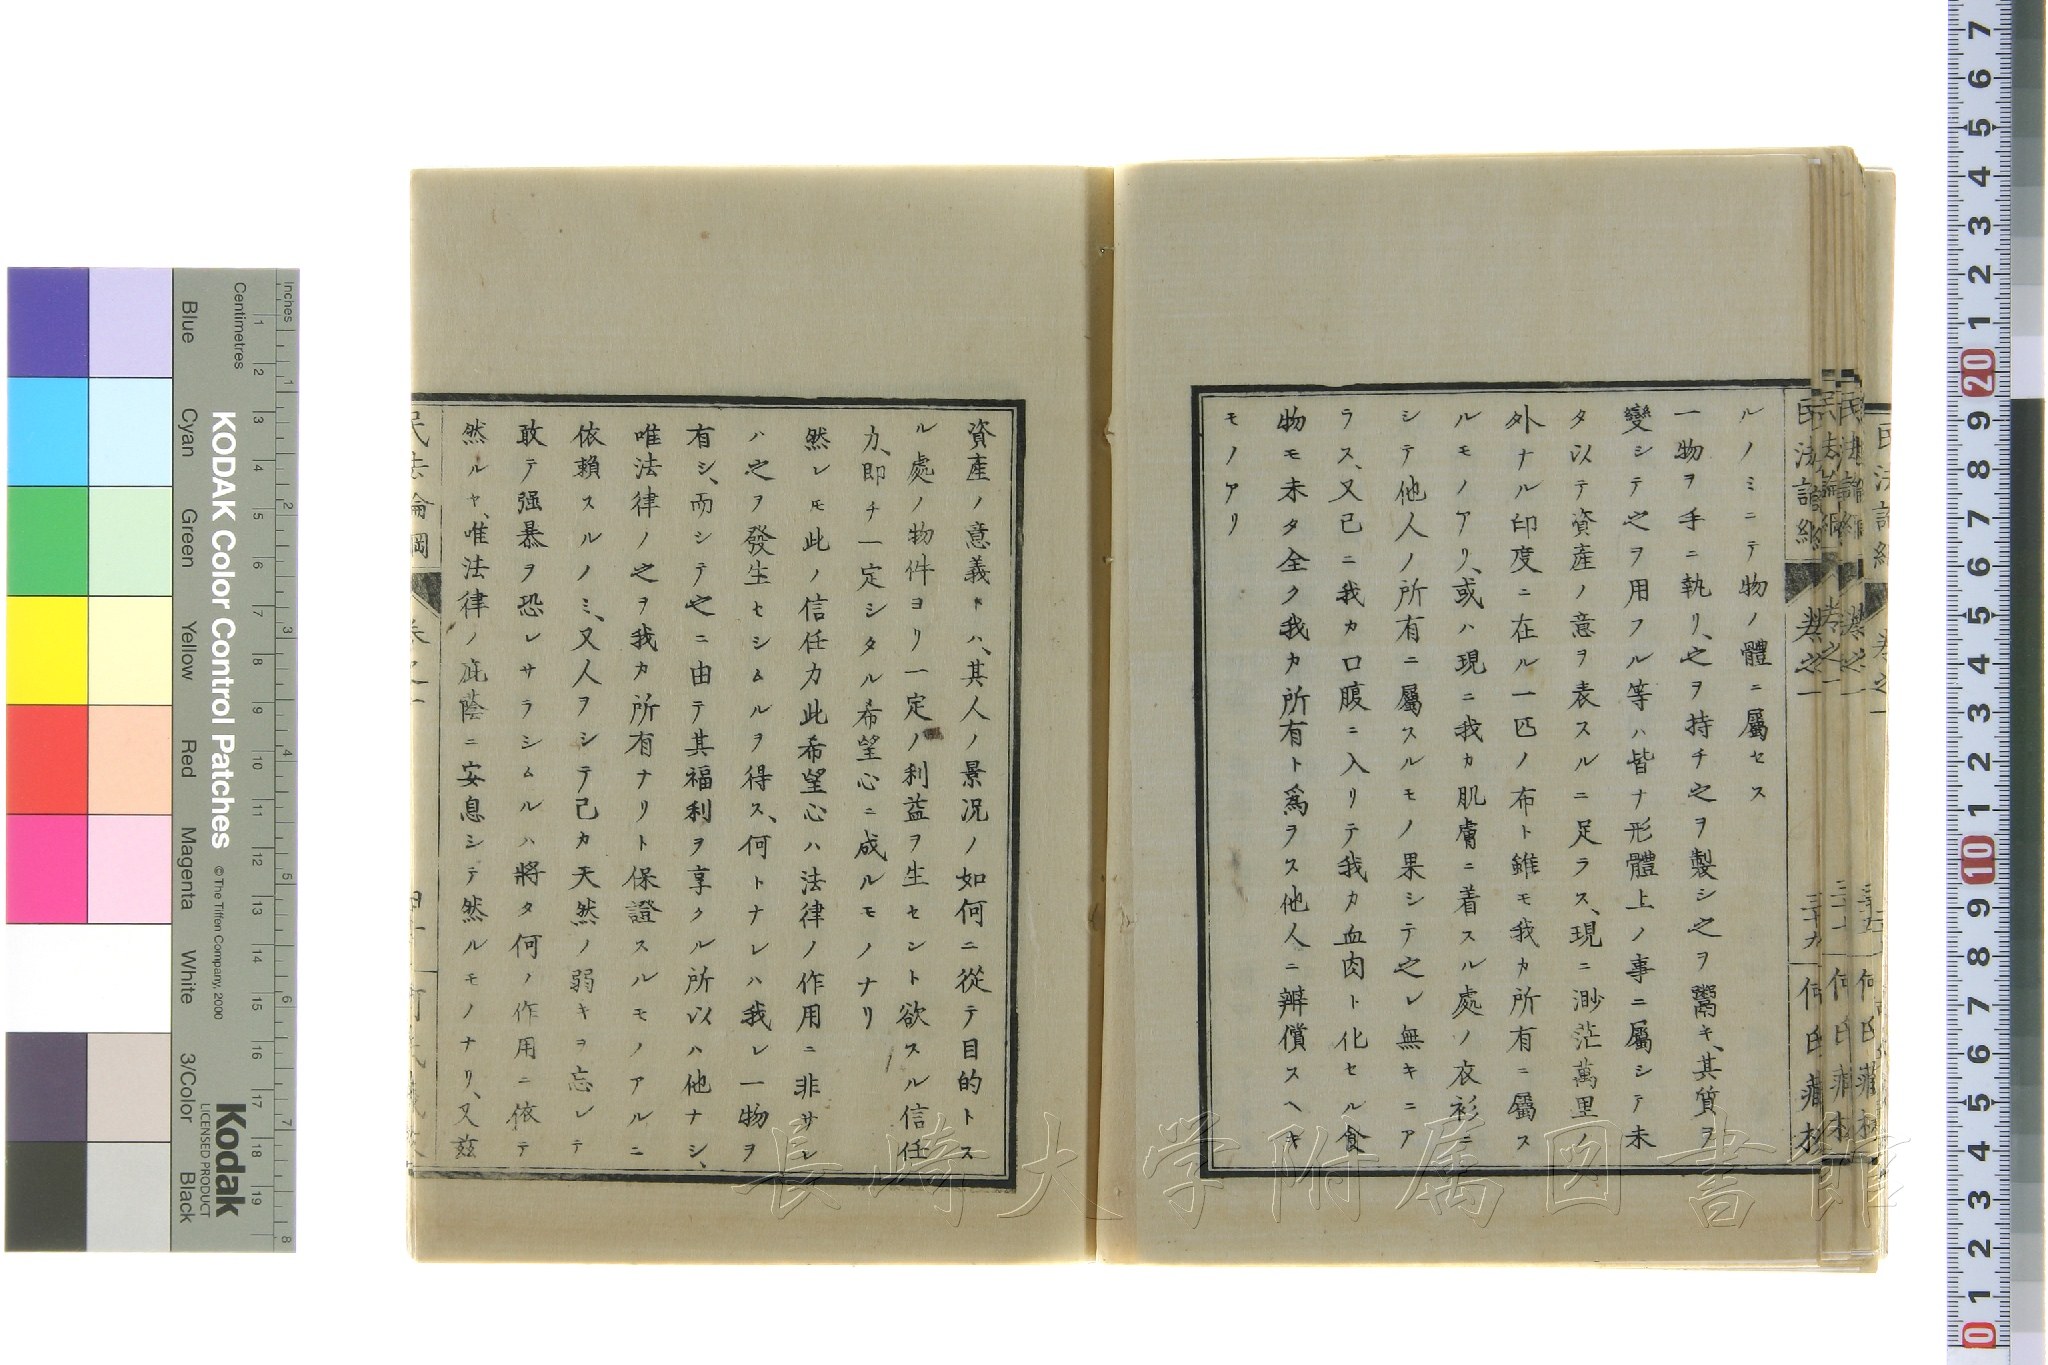 ルノミニテ物ノ體ニ屬セス
一物ヲ手ニ執リ、之ヲ持チ之ヲ製シ之ヲ鬻キ、其質ヲ
變シテ之ヲ用フル等ハ皆ナ形體上ノ事ニ屬シテ未
タ以テ資産ノ意ヲ表スルニ足ラス、現ニ渺茫萬里
外ナル印度ニ在ル一匹ノ布ト雖モ我カ所有ニ屬ス
ルモノアリ、或ハ現ニ我カ肌膚ニ着スル處ノ衣衫ニ
シテ他人ノ所有ニ屬スルモノ果シテ之レ無キニア
ラス、又已ニ我カ口腹ニ入リテ我カ血肉ト化セル食
物モ未タ全ク我カ所有ト爲ヲス他人ニ辨償スヘキ
モノアリ
資産ノ意義ハ、其人ノ景況ノ如何ニ從テ目的トス
ル處ノ物件ヨリ一定ノ利益ヲ生セント欲スル信任
力、即チ一定シタル希望心ニ成ルモノナリ
然レモ此ノ信任力此希望心ハ法律ノ作用ニ非サレ
ハ之ヲ發生セシムルヲ得ス、何トナレハ我レ一物ヲ
有シ、而シテ之ニ由テ其福利ヲ享クル所以ハ他ナシ、
唯法律ノ之ヲ我カ所有ナリト保證スルモノアルニ
依賴スルノミ、又人ヲシテ己カ天然ノ弱キヲ忘レテ
敢テ强暴ヲ恐レサラシムルハ將タ何ノ作用ニ依テ
然ルヤ、唯法律ノ庇蔭ニ安息シテ然ルモノナリ、又茲
民法論綱
卷之一
民法論綱 卷之一 三十九 何氏藏板
長崎大学附属図書館
Inches
Centimetres
KODAK Color Control Patches
© The Tiffen Company, 2000
Kodak
LICENSED PRODUCT
Blue
Cyan
Green
Yellow
Red
Magenta
White
3/Color
Black
1 2 3 4 5 6 7 8 9 10 11 12 13 14 15 16 17 18 19
1 2 3 4 5 6 7 8
7 6 5 4 3 2 1 20 9 8 7 6 5 4 3 2 1 10 9 8 7 6 5 4 3 2 1 0